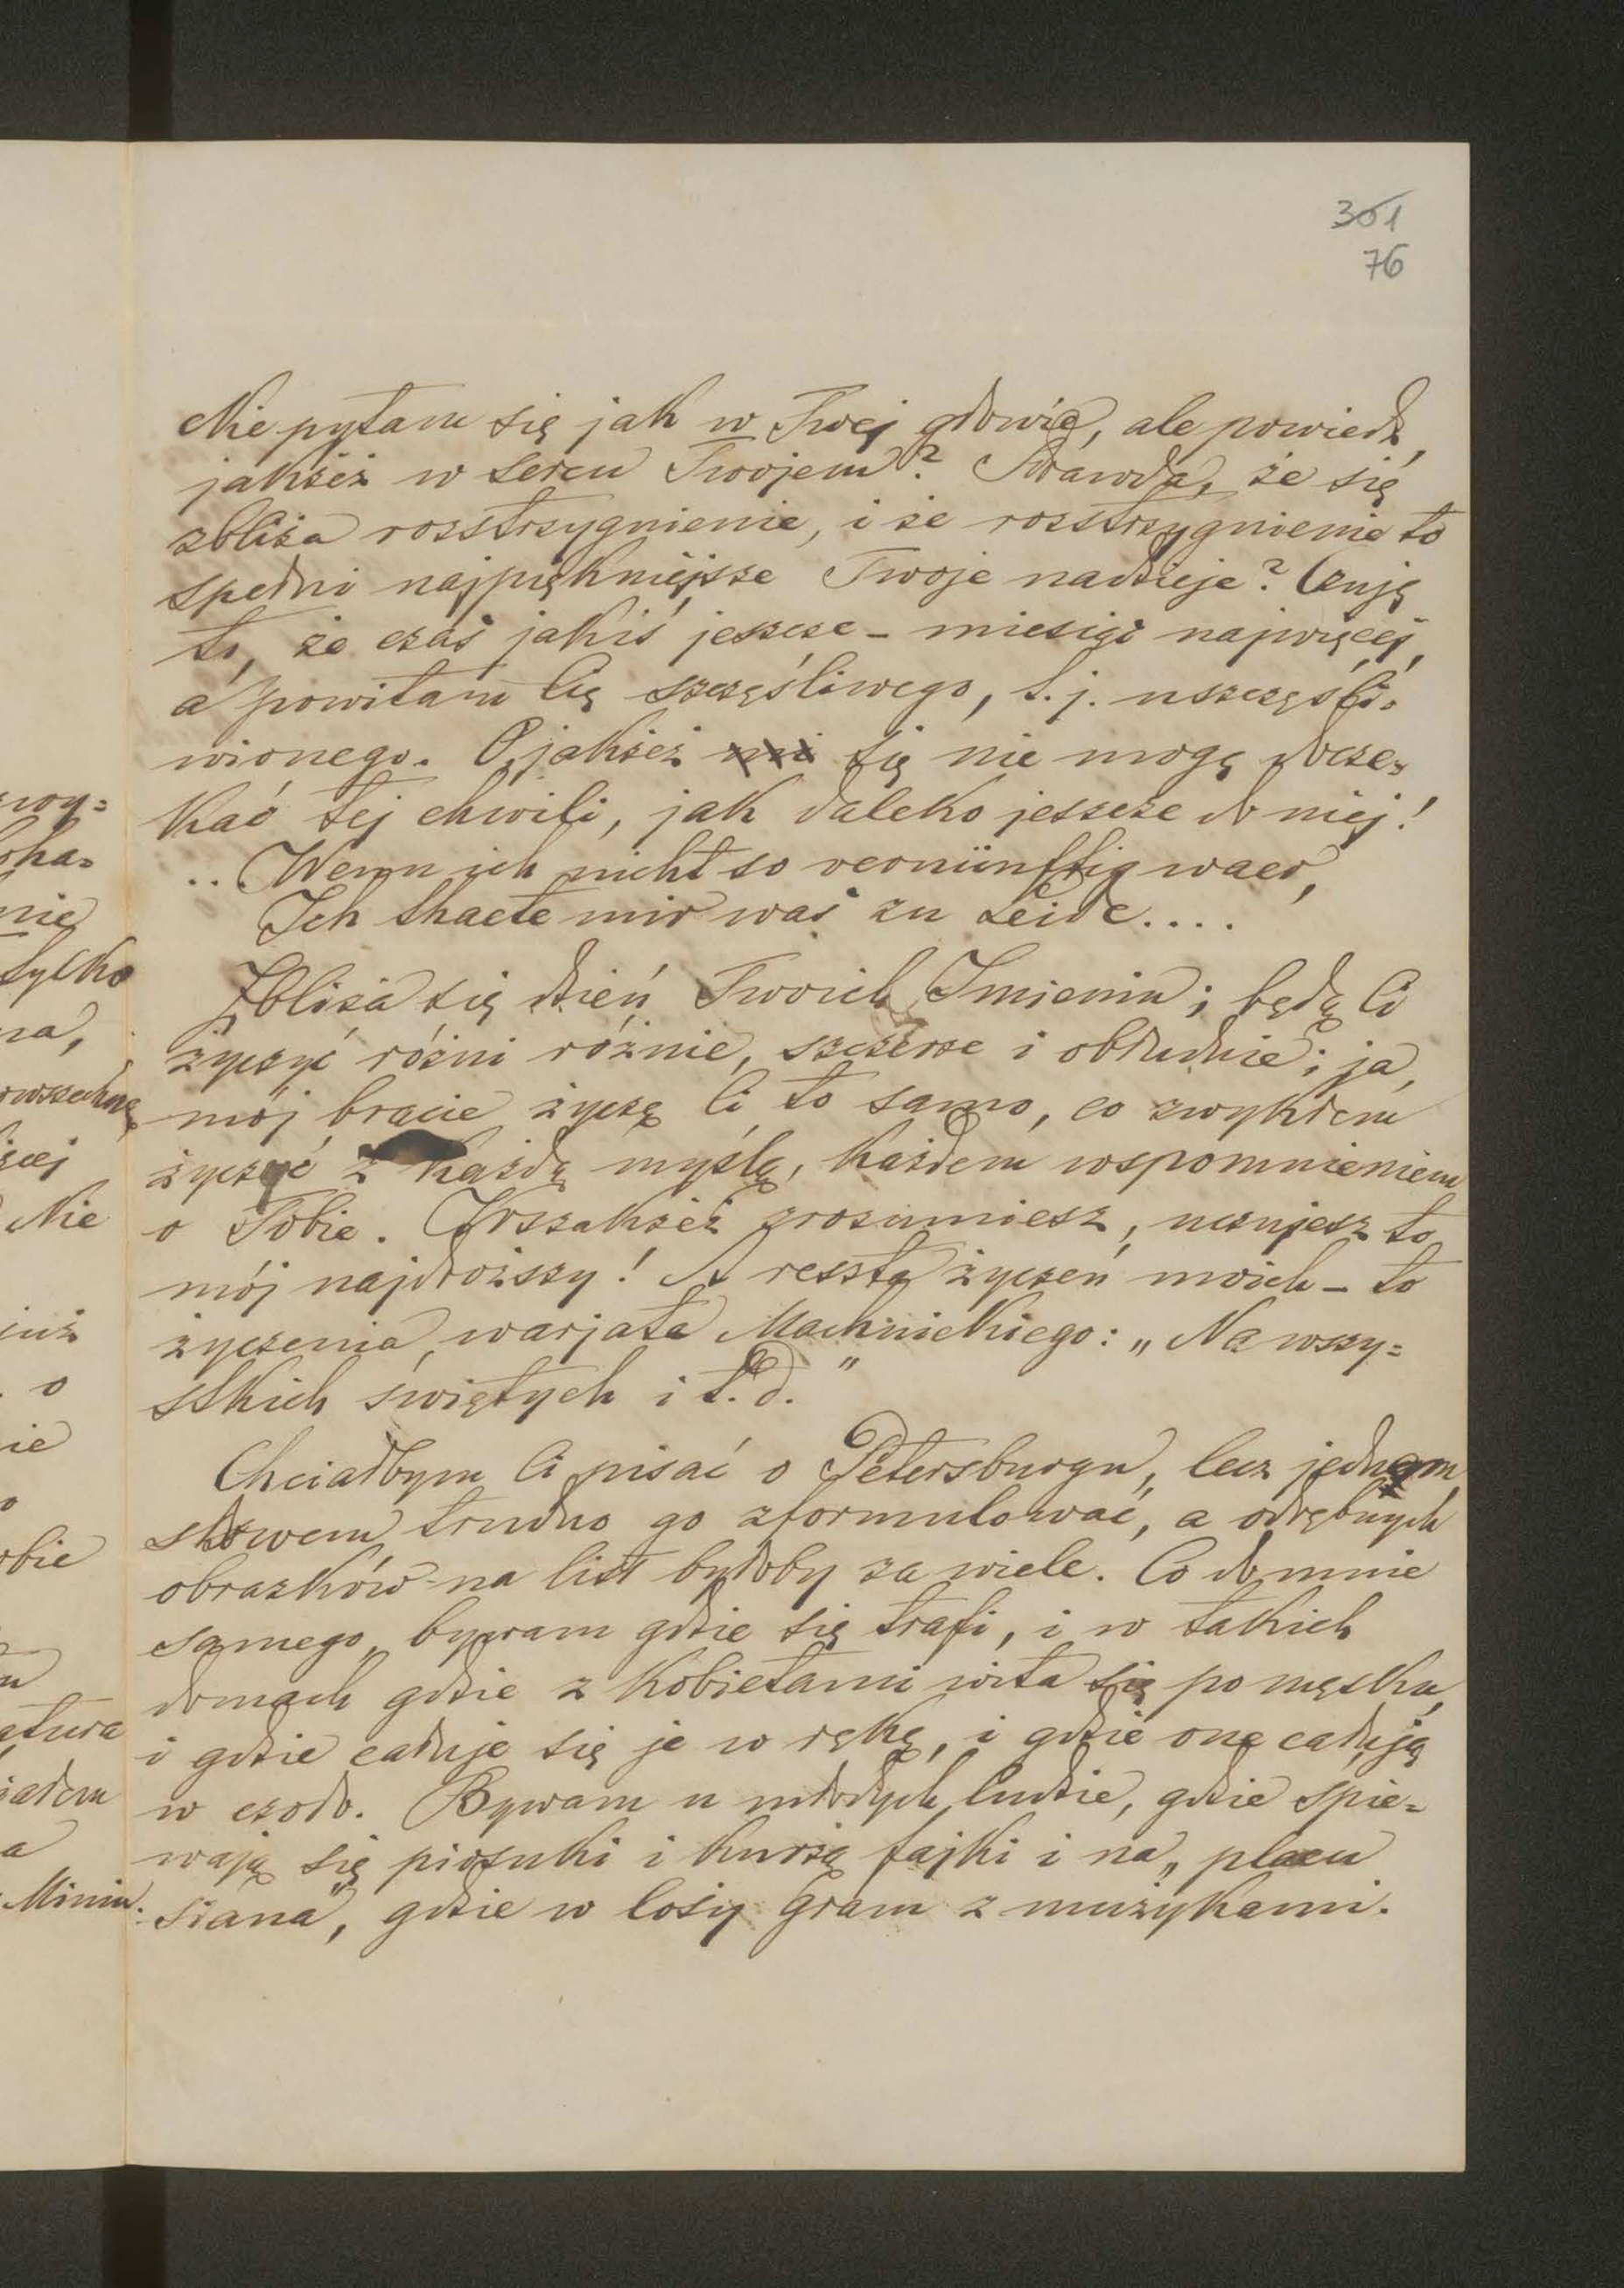 301
76
Nie pytam się jak w Twej głowie, ale powiedz,
jakżeż w sercu Twojem? Prawda, że się
zbliża rozstrzygnienie, i że rozstrzygnienie to
spełni najpiękniejsze Twoje nadzieje? Czuję
to, że czas jakiś jeszcze – miesiąc najwięcej,
a powitam Cię szczęśliwego, t. j. uszczęśli=
wionego. O, jakżeż się nie mogę docze=
kać tej chwili, jak daleko jeszcze do niej!
.. Wenn ich nicht so vernünftig waer,
Ich thaete mir was zu Leide....
Zbliża się dzień Twoich Imienin; będą Ci
życzyć różni różnie, szczerze i obłudnie; ja,
mój bracie życzę Ci to samo, co zwykłem
życzyć z każdą myślą, każdem wspomnieniem
o Tobie. Wszakżeż zrozumiesz, uczujesz to
mój najdroższy! A reszta życzeń moich – to
życzenia warjata Machnickiego: „Na wszy=
stkich świętych i t. d."
Chciałbym Ci pisać o Petersburgu, lecz jednem
słowem trudno go zformułować, a odrębnych
obrazków na list byłoby za wiele. Co do mnie
samego, bywam gdzie się trafi, i w takich
domach gdzie z kobietami wita się po męsku,
i gdzie całuje się je w rękę, i gdzie one całują
w czoło. Bywam u młodych ludzie, gdzie spie=
wają się piosnki i kurzą fajki i na „placu
siana", gdzie w łoży gram z mużykami.
zwy=
oha=
nie
tylko
na,
owszechne
Nie
już
o
ie
o
obie
atura
iałem
a
Minin.